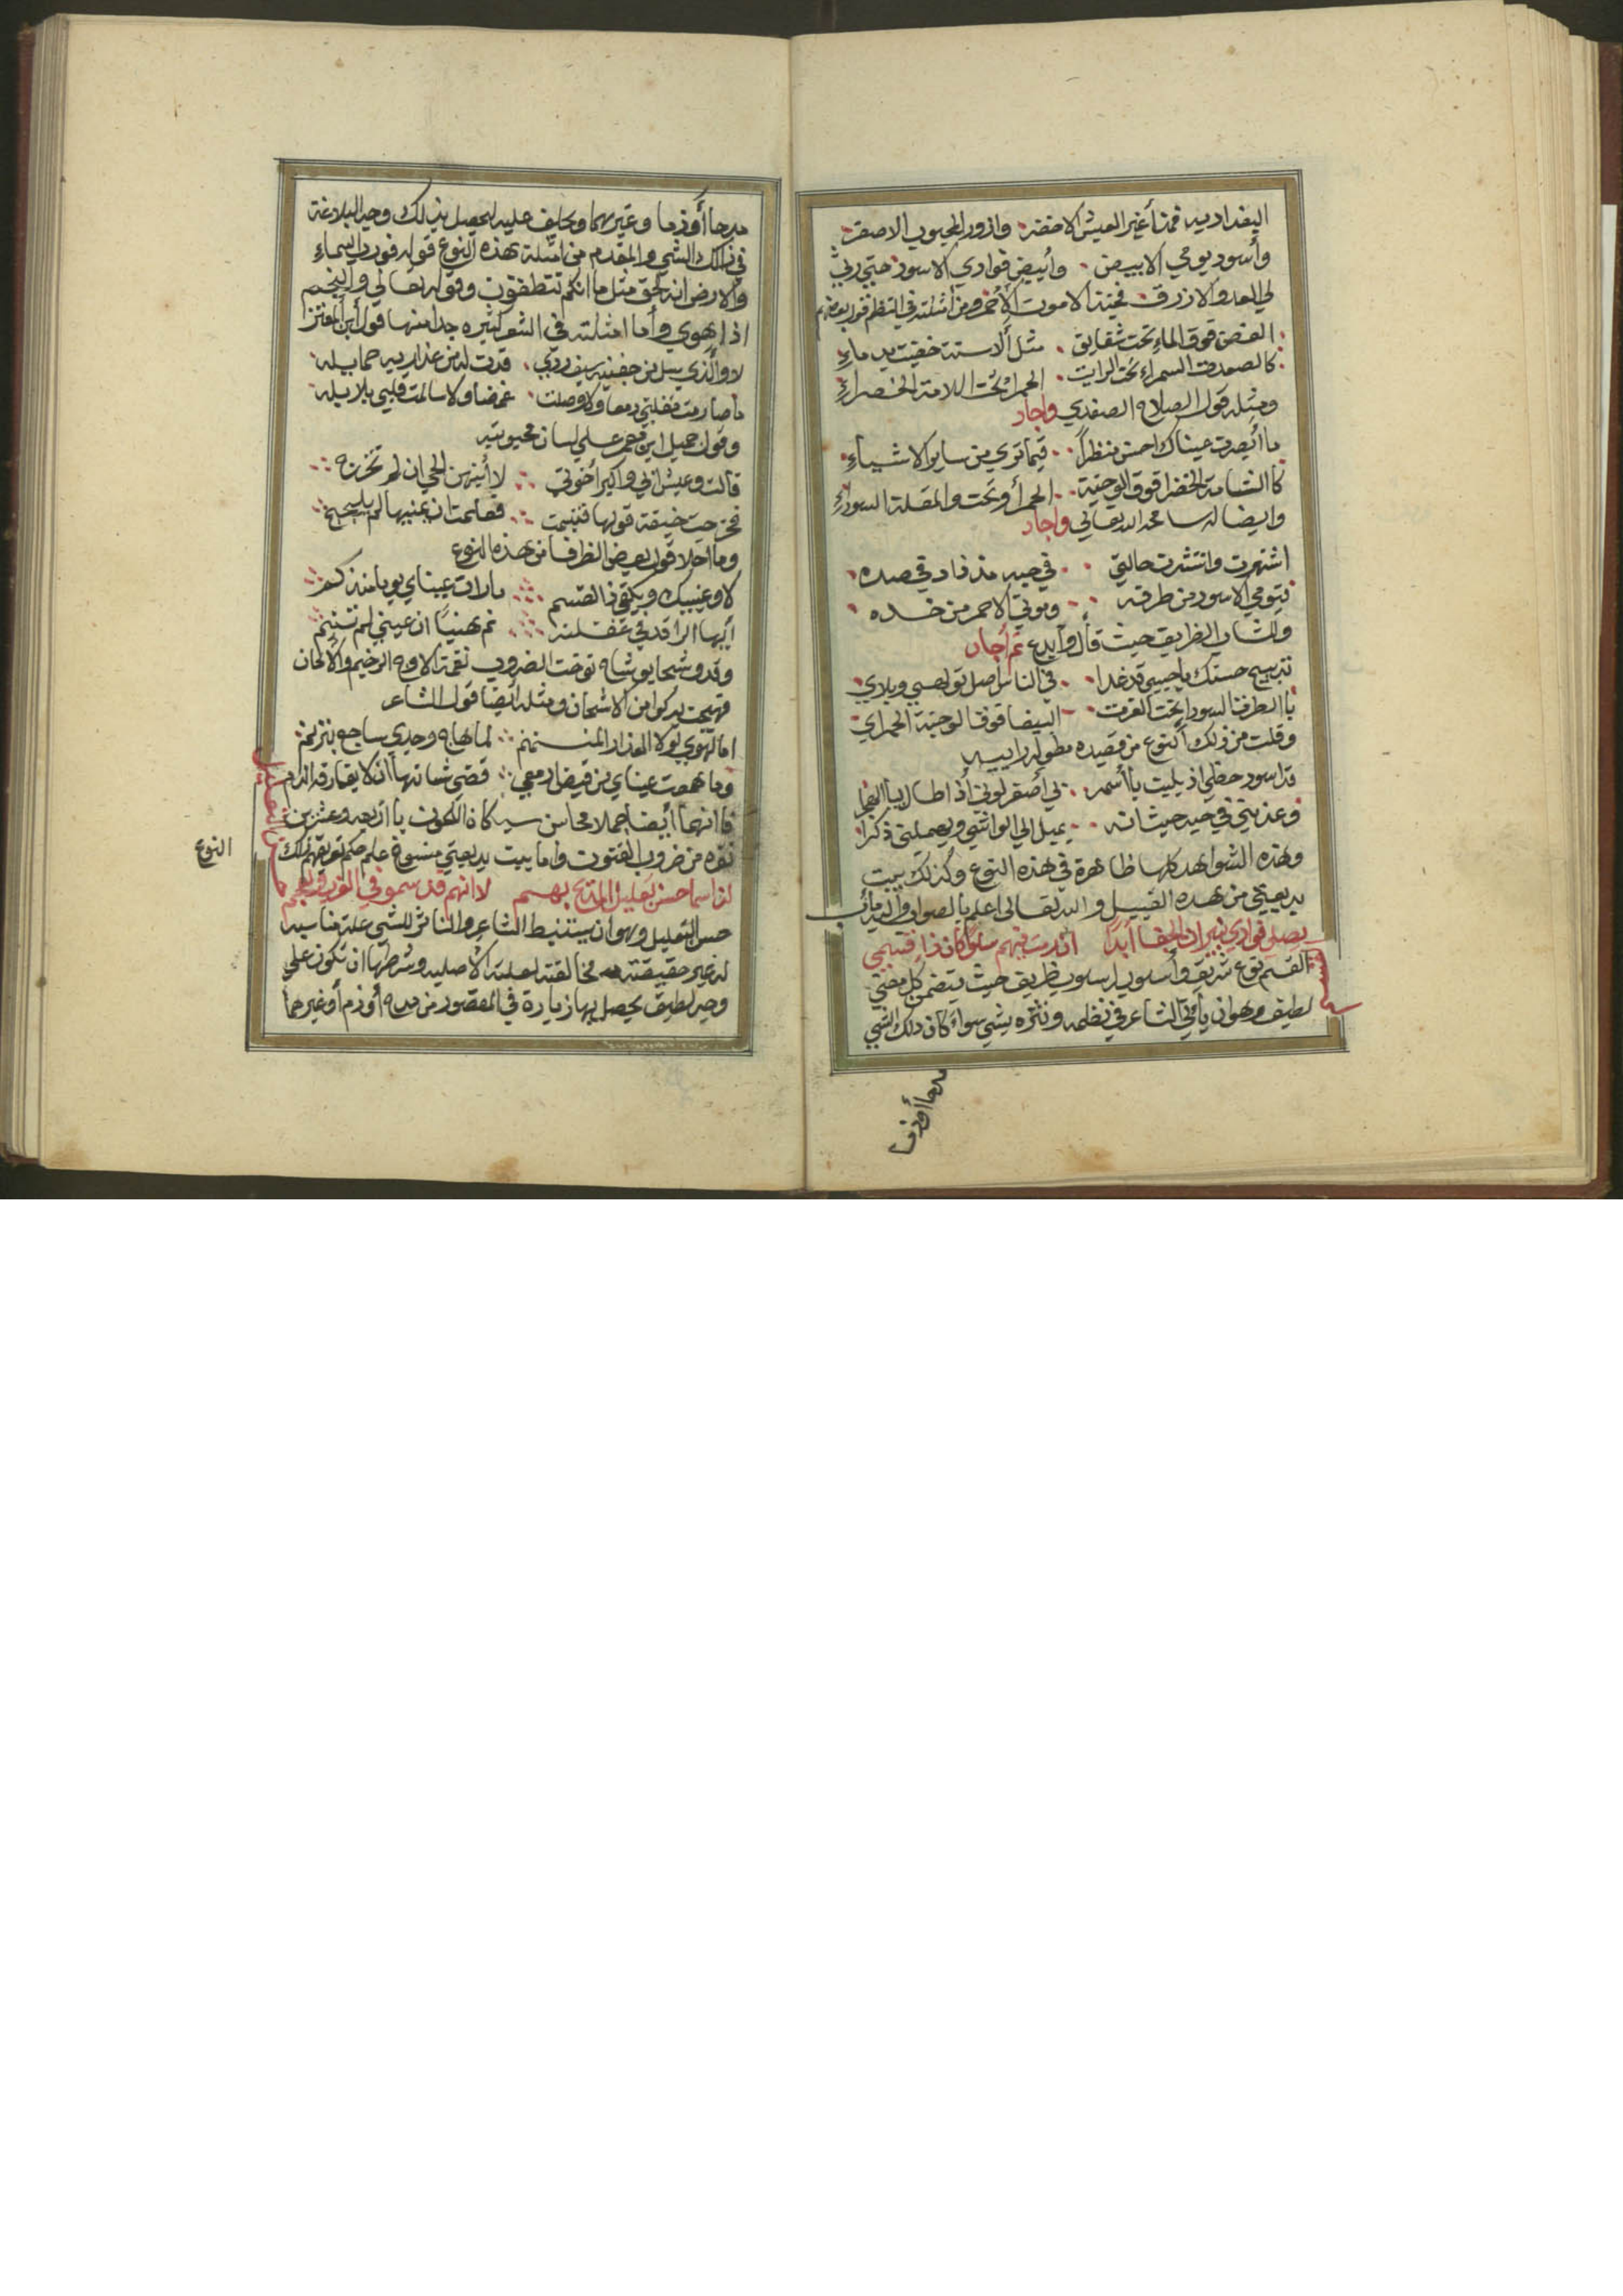 البغداديه فمذ أغبر العيش الاخضر وازور المحبوب الاصفر
وأسود يومي الابيض وأبيض فوادي الاسود حتي رثي
لي العدو الازرق فحبذا الاموت الأحمر ومن امثلته في النظم قول بعضهم
الغصن فوق الماء تحت شقايق مثل ألاسنة خضبت بدماء
كالصعدة السمراء تحت الرايت الحمراء تحت اللامة الخضراء
ومثله قول الصلاح الصفدي واجاد
ما أبصرت عيناك احسن منظراً فيما تري من ساير الاشياء
كاالشامة الخضرا فوق الوجنة الحمرا وتحت والمقلة السوداء
وايضا له سامحه الله تعالي واجاد
اشتهرت وانتشرت حالتي في حبه مذ زاد في صده
فيومي الاسود من طرفه وموتي الاحمر من خده
والشاب الظريف حيث قال وأبدع ثم أجاد
تدبيج حسنك ياحبيبي قد غدا في الناس أصل تولهبي وبلاي
باالطرة السودا تحت الغرت البيضا فوق الوجنة الحمراي
وقلت من ذلك النوع من قصيده مطوله راييه
قد اسود حظي اذ بليت باأسمر بي أصفر لوني أذ اطال بيا الهجرا
وعذبتني في حبه حيث انه يميل الي الواشي ويهملني ذكرا
وهذه الشواهد كلها ظاهرة في هذه النوع وكذلك بيت
بديعيتي من هذه القبيل والله تعالي اعلم باالصواب واليه مأب
يصلي فوادي نيران الجفا أبدًا ان رمت فيهم سلوًا كان ذا قسمي
القسم نوع شريف وأسلوب اسلوب ظريف حيث يتضمن كل معني
لطيف وهو ان يأتي الشاعر في نظمه ونثره بشي سواء كان ذلك الشي
القسم
مدحا أوذما
مدحا أوذما وغيرهما ويحلف عليه ليحصل بذلك وجه البلاغة
في ذالك الشي والمقدم من امثلة هذه النوع قوله فورب السماء
والارض انه لحق مثل ما انكم تنطقون وقوله تعالي والنجم
اذا هوي وأما امثلته في الشعر كثيره جدا منها قول أبن المعتز
لاوالذي سل من جفنيه سيف ردي قدت له من عذاريه حمايله
ماصارمت مقلتي دمعا ولا وصلت غمضا ولا سالمت قلبي بلابله
وقول جميل ابن معمر علي لسان محبوبته
قالت وعيش ابي واكبر أخوتي لا أنبهن الحي ان لم تخرج
فخرجت خيفة قولها فتبسمت فعلمت ان يمينها لم يلجج
وما احلا قول بعض الظرفا من هذه النوع
لا وعينيك ويكفي ذا القسم مارات عيناي يوما منذ كم
أيها الراقد في غفلته نم هنيئًا ان عيني لم تنم
وقد وشحا بوشاح توخت الضروب نغمة الاوج الرخيم والالحان
فهيجت بذكوامن الاشجان ومثله أيضا قول الشاعر
اما لهوي لولا العذار المنمنم لما هاج وجدي ساجع يترنم
وما همعت عيناي من فيض ادمعي قضي شانها أن لا يفارقه الدم
فاانهما أيضا جملا محاسن سبكاة اللحون باأربعه وعشرين
نقره من ضروب الفنون واما بيت بديعيتي منسوج علي حكم توريتهم بذلك
لذا سما حسن تعليل المديح بهم لا انهم قد سمو في العرب والعجم
حسن التعليل وهو أن يستنبط الشاعر والناثر للشي علة مناسبه
له غير حقيقته مخالفته لعلته الاصليه وشرطها ان تكون علي
وجه لطيف يحصل بها زيادة في المقصود من مدح أو ذم أو غيرهما
النوع